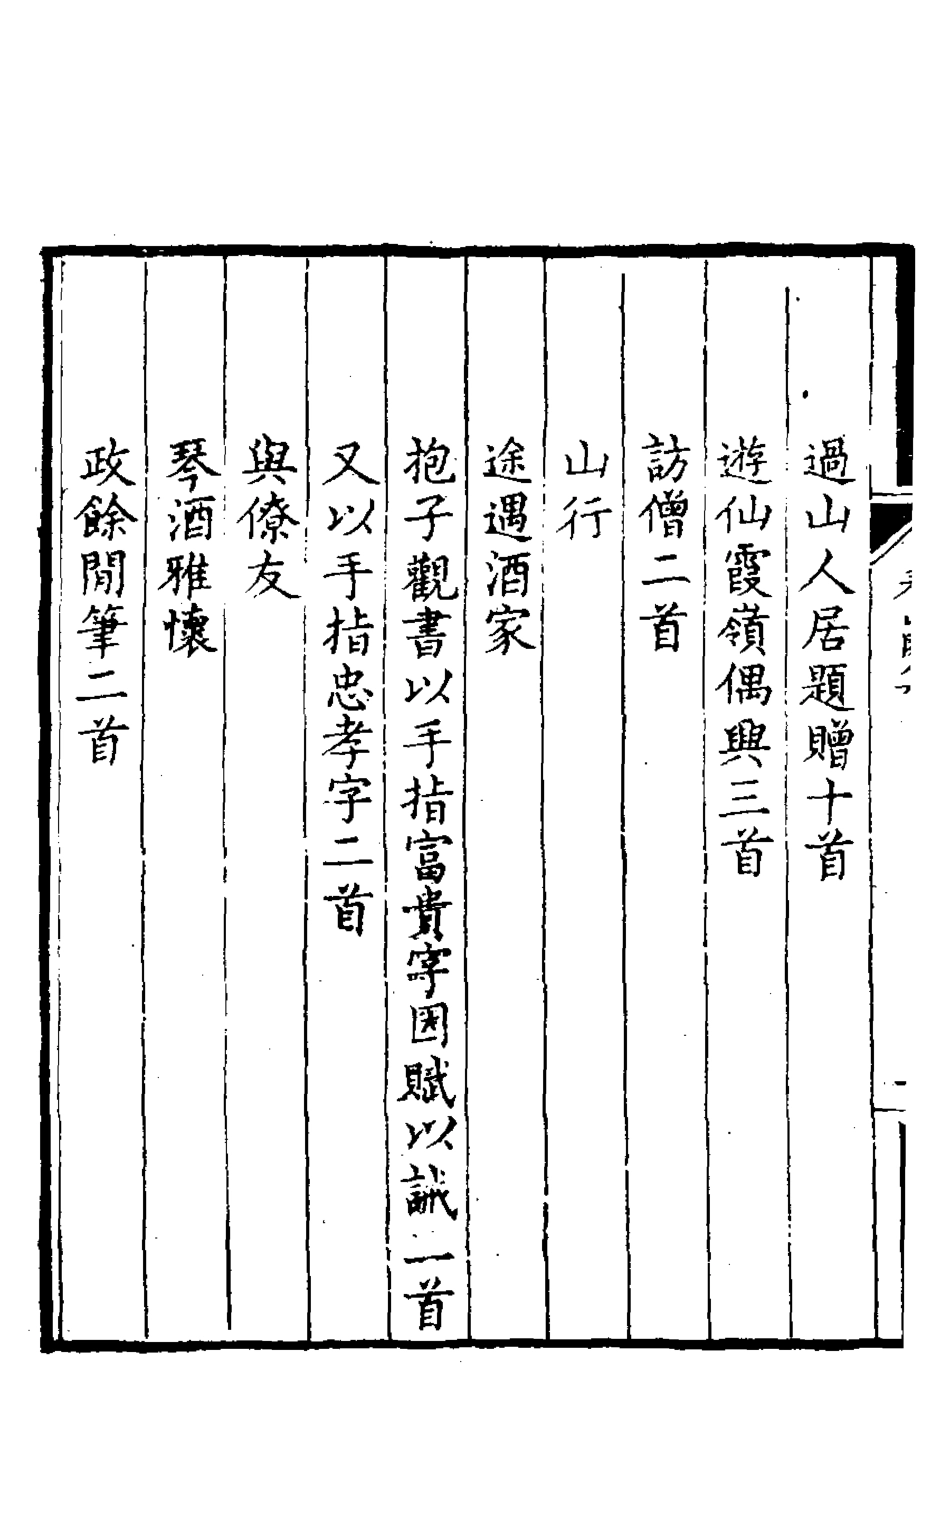 過山人居題贈十首
遊仙霞嶺偶興三首
訪僧二首
山行
途遇酒家
抱子觀書以手指富貴字因賦以誡二首
又以手指忠孝字二首
與僚友
琴酒雅懷
政餘閒筆二首